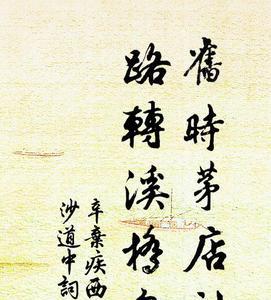 舊時茅店
路轉溪橋
辛棄疾西
沙道中詞